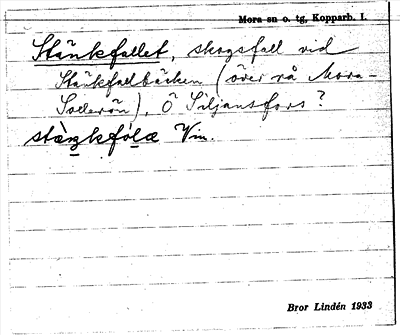 Mora sn o. tg, Kopparb. l.
Stänkfallet, skogsfall vid
Stänkfallbäcken (över rå Mora-
Sollerön), Ö Siljansfors?
stàŋkfóla Vm.
Bror Lindén 1933